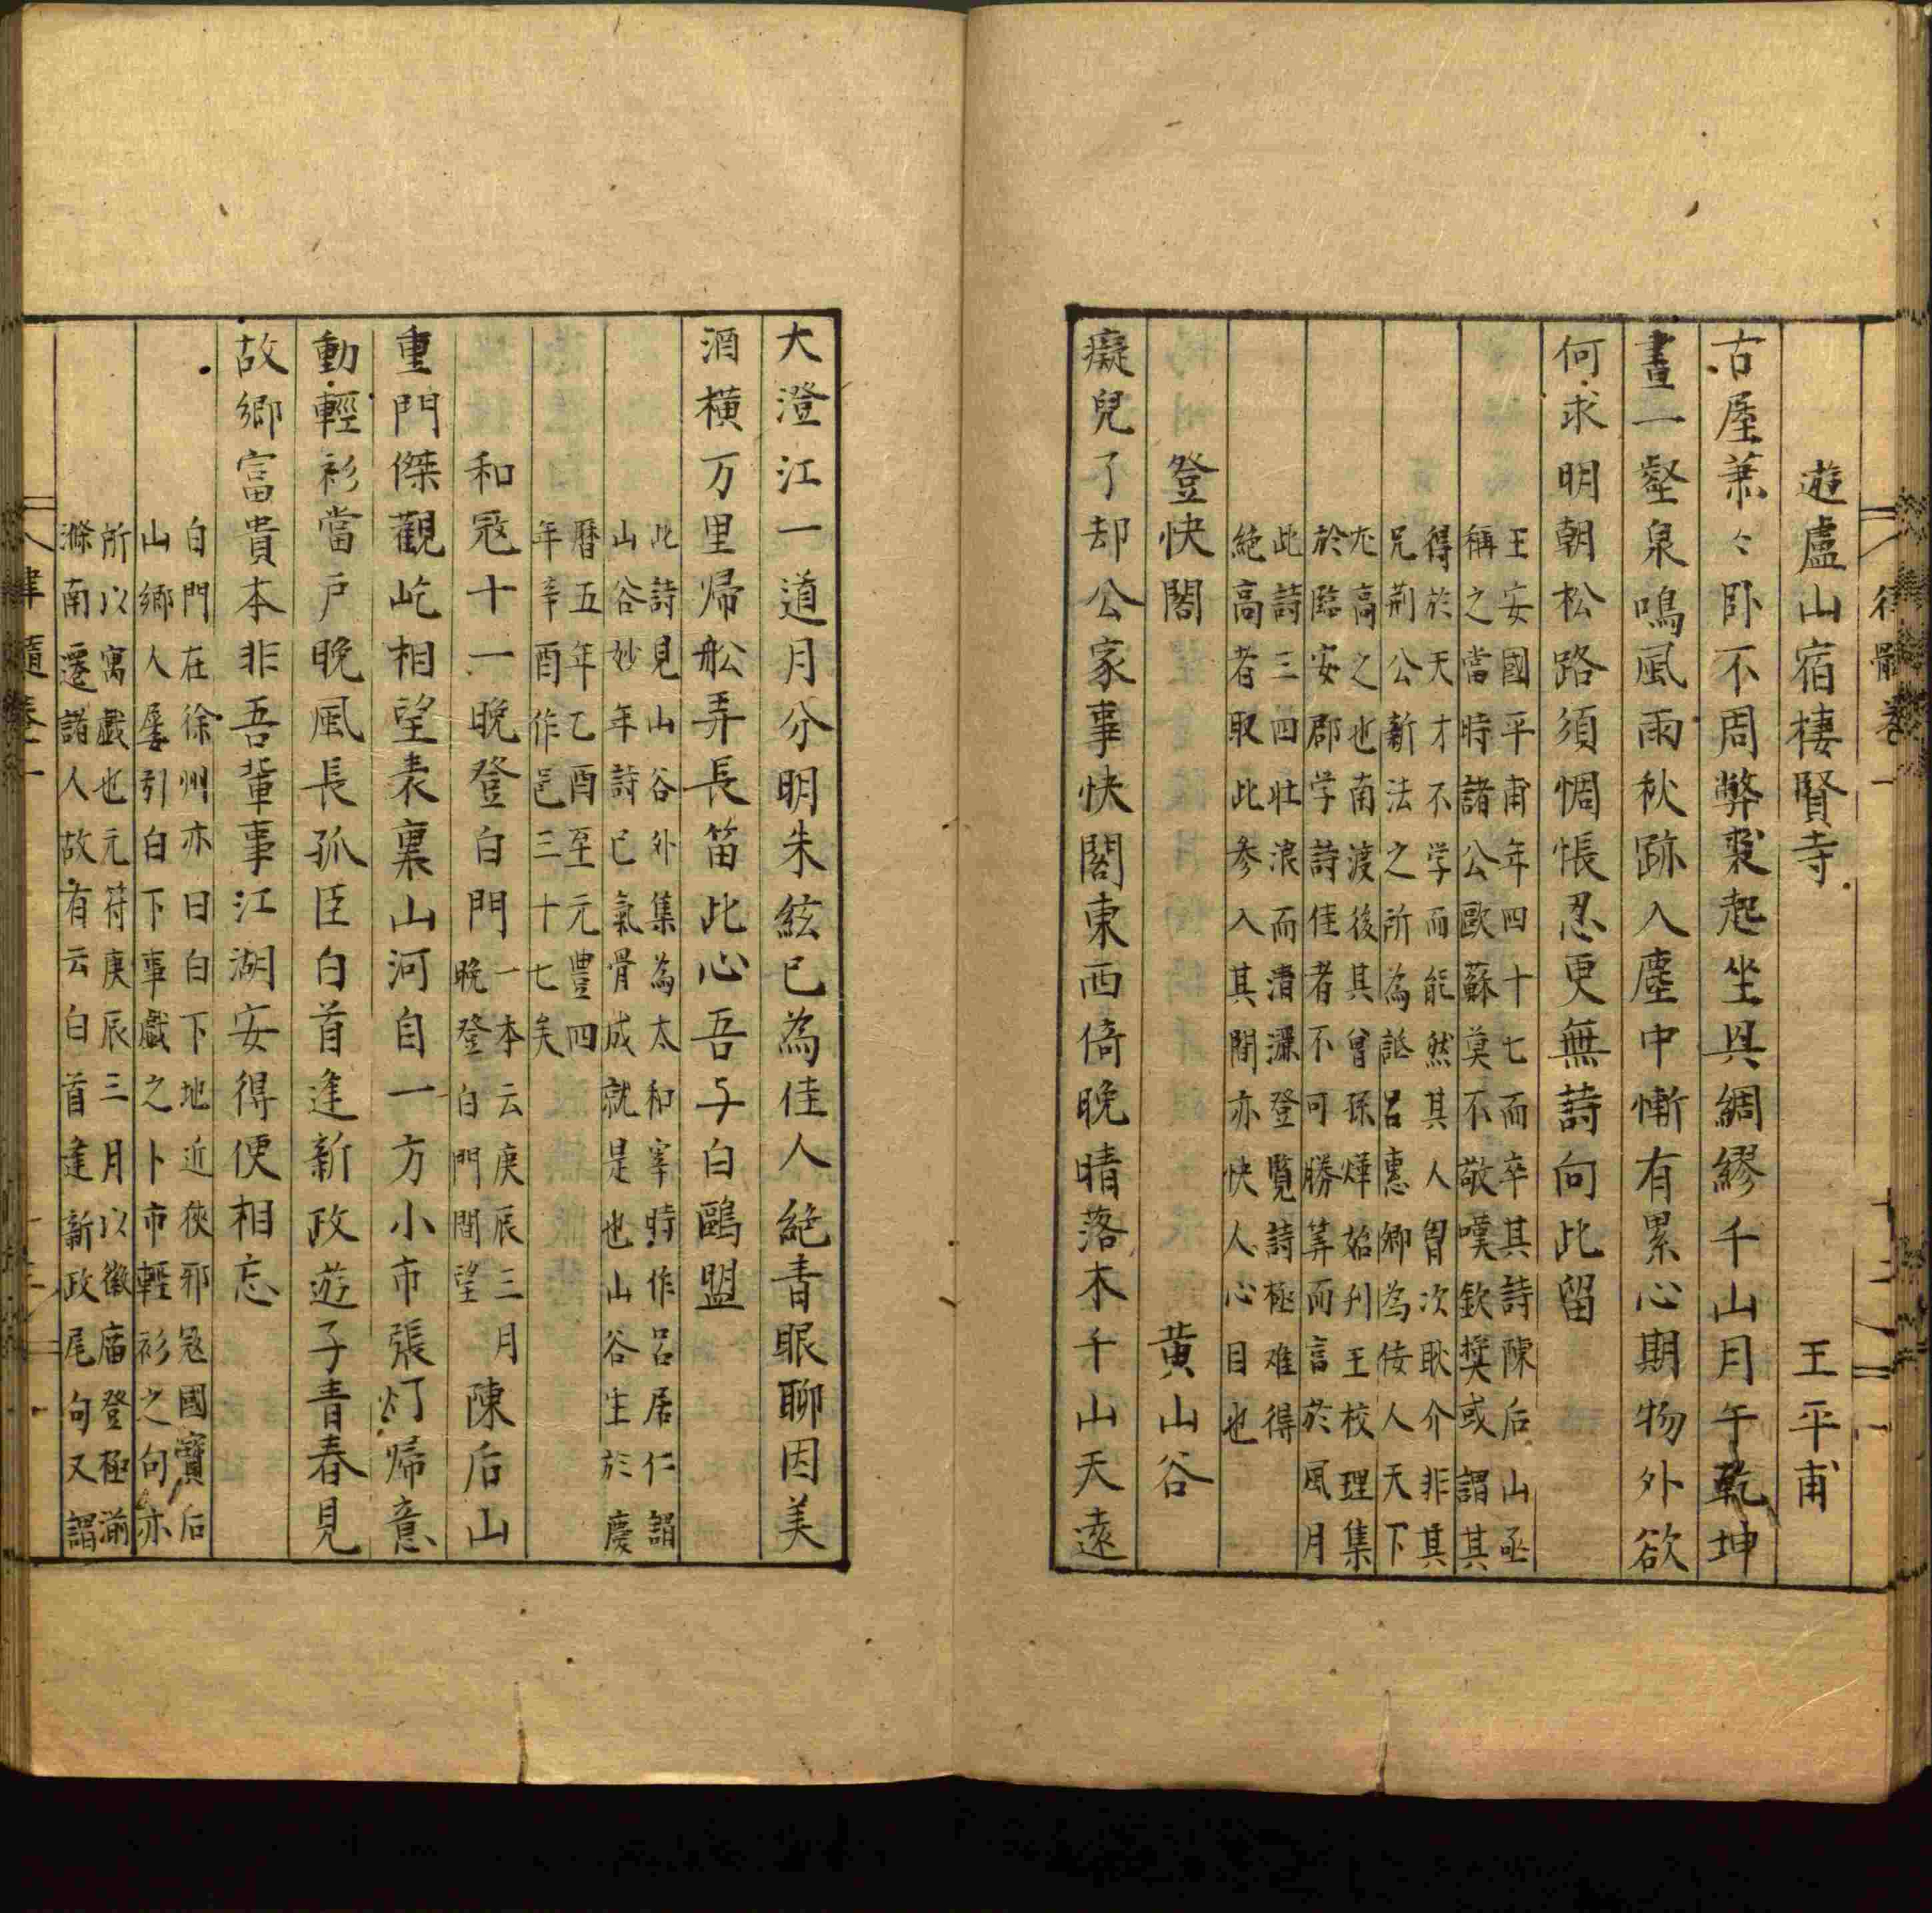 律髓卷一
遊盧山宿棲賢寺　王平甫
古屋萧々卧不周弊裘起坐具綢繆千山月午乾坤
晝一壑泉鳴風雨秋跡入塵中慚有累心期物外欲
何求明朝松路須惆悵忍更無詩向此留
王安國平甫年四十七而卒其詩陳后山亟
稱之當時諸公歐蘇莫不敬嘆欽奬或謂其
得於天才不学而能然其人胷次耿介非其
兄荆公新法之所為詆吕惠卿為佞人天下
尤高之也南渡後其曾孫燁始刋王校理集
於臨安郡学詩佳者不可勝筭而言於風月
此詩三四壮浪而清灑登覧詩極难得
絶高者取此叅入其間亦快人心目也
登快閣　黄山谷
癡兒了却公家事快閣東西倚晚晴落木千山天遠
大澄江一道月分明朱絃已為佳人絶青眼聊因美
酒横万里帰舩弄長笛此心吾与白鷗盟
此詩見山谷外集為太和宰時作吕居仁謂
山谷妙年詩已氣骨成就是也山谷生於慶
暦五年乙酉至元豊四
年辛酉作邑三十七矣
和冦十一晚登白門　一本云庚辰三月
晚登白門間望　陳后山
重門傑觀屹相望表裏山河自一方小市張灯帰意
動輕衫當戸晚風長孤臣白首逢新政遊子青春見
故鄉富貴本非吾輩事江湖安得便相忘
白門在徐州亦曰白下地近俠邪冦國寳后
山鄉人屡引白下事戯之卜市輕衫之句亦
所以寓戯也元符庚辰三月以徽庙登極湔
滌南遷諸人故有云白首逢新政尾句又謂
律髓卷一